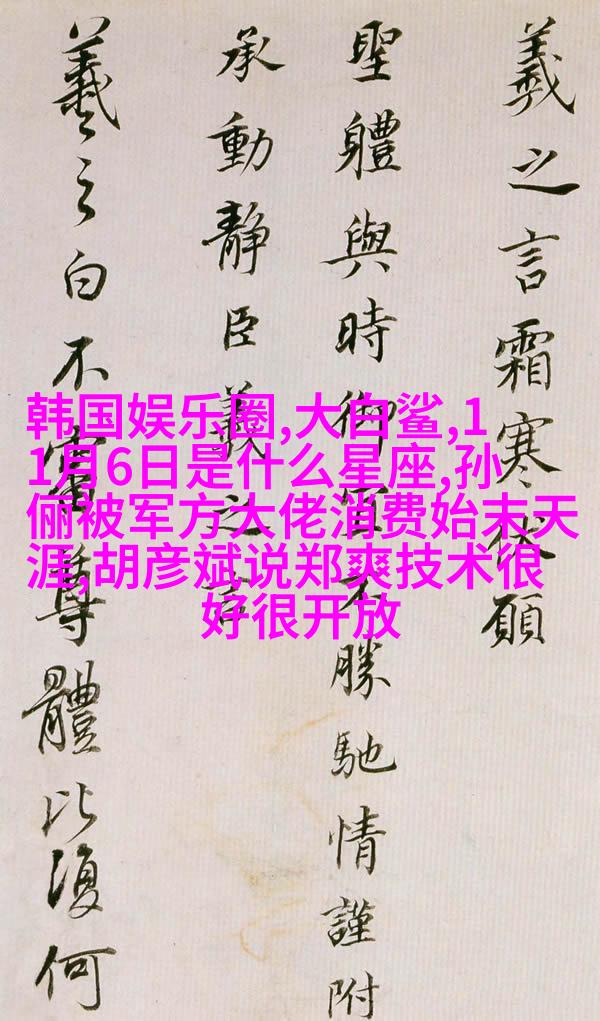 羲之言霜寒伏願
聖體與時御宜不勝馳情謹附
承動靜臣羲之言
羲之白不審尊體比復何
韩国娱乐圈,大白鲨,1
1月6日是什么星座,孙
俪被军方大佬消费始末天
涯,胡彦斌说郑爽技术很
好很开放